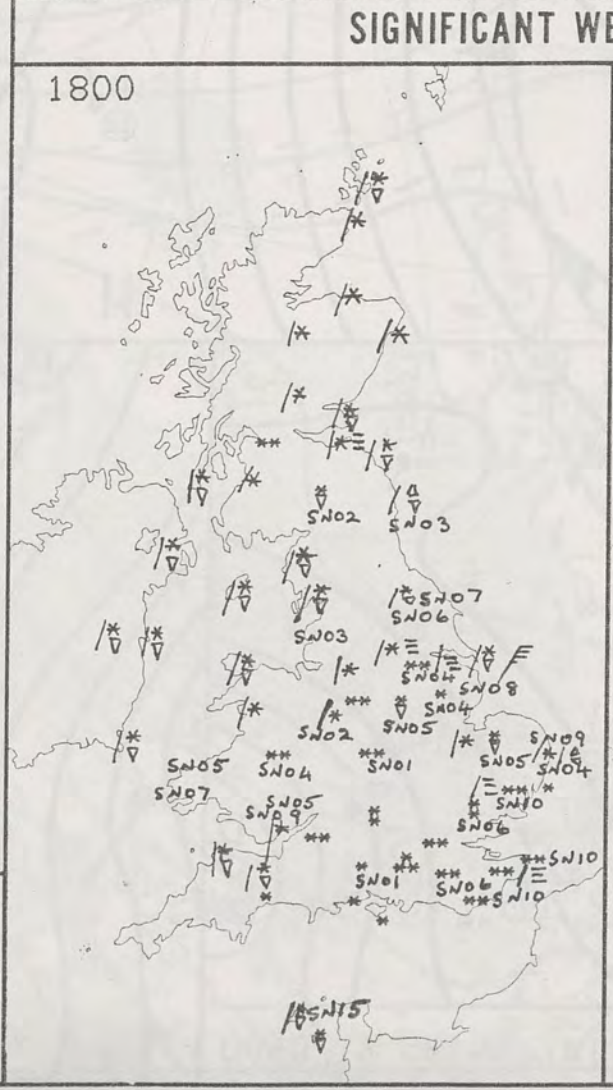 SIGNIFICANT WE
1800
SN02
SN03
SN07
SN06
SN03
SN04
SN08
SN04
SN02
SN05
SN09
SN05
SN04
SN05
SN04
SN01
SN07
SN10
SN05
SN09
SN06
SN10
SN01
SN06
SN10
SN15